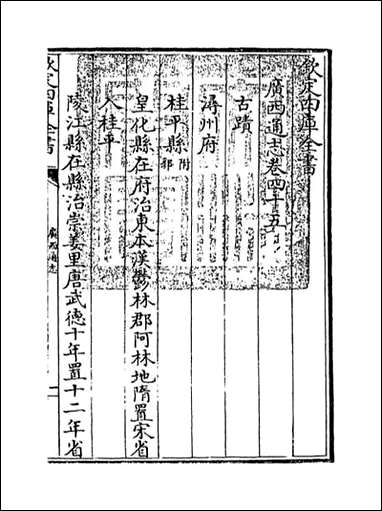 欽定四庫全書
廣西通志卷四十五
古蹟
潯州府
桂平縣附郭
皇化縣在府治東本漢鬱林郡阿林地隋置宋省
入桂平
陵江縣在縣治崇姜里唐武德十年置十二年省
欽定四庫全書
廣西通志
一